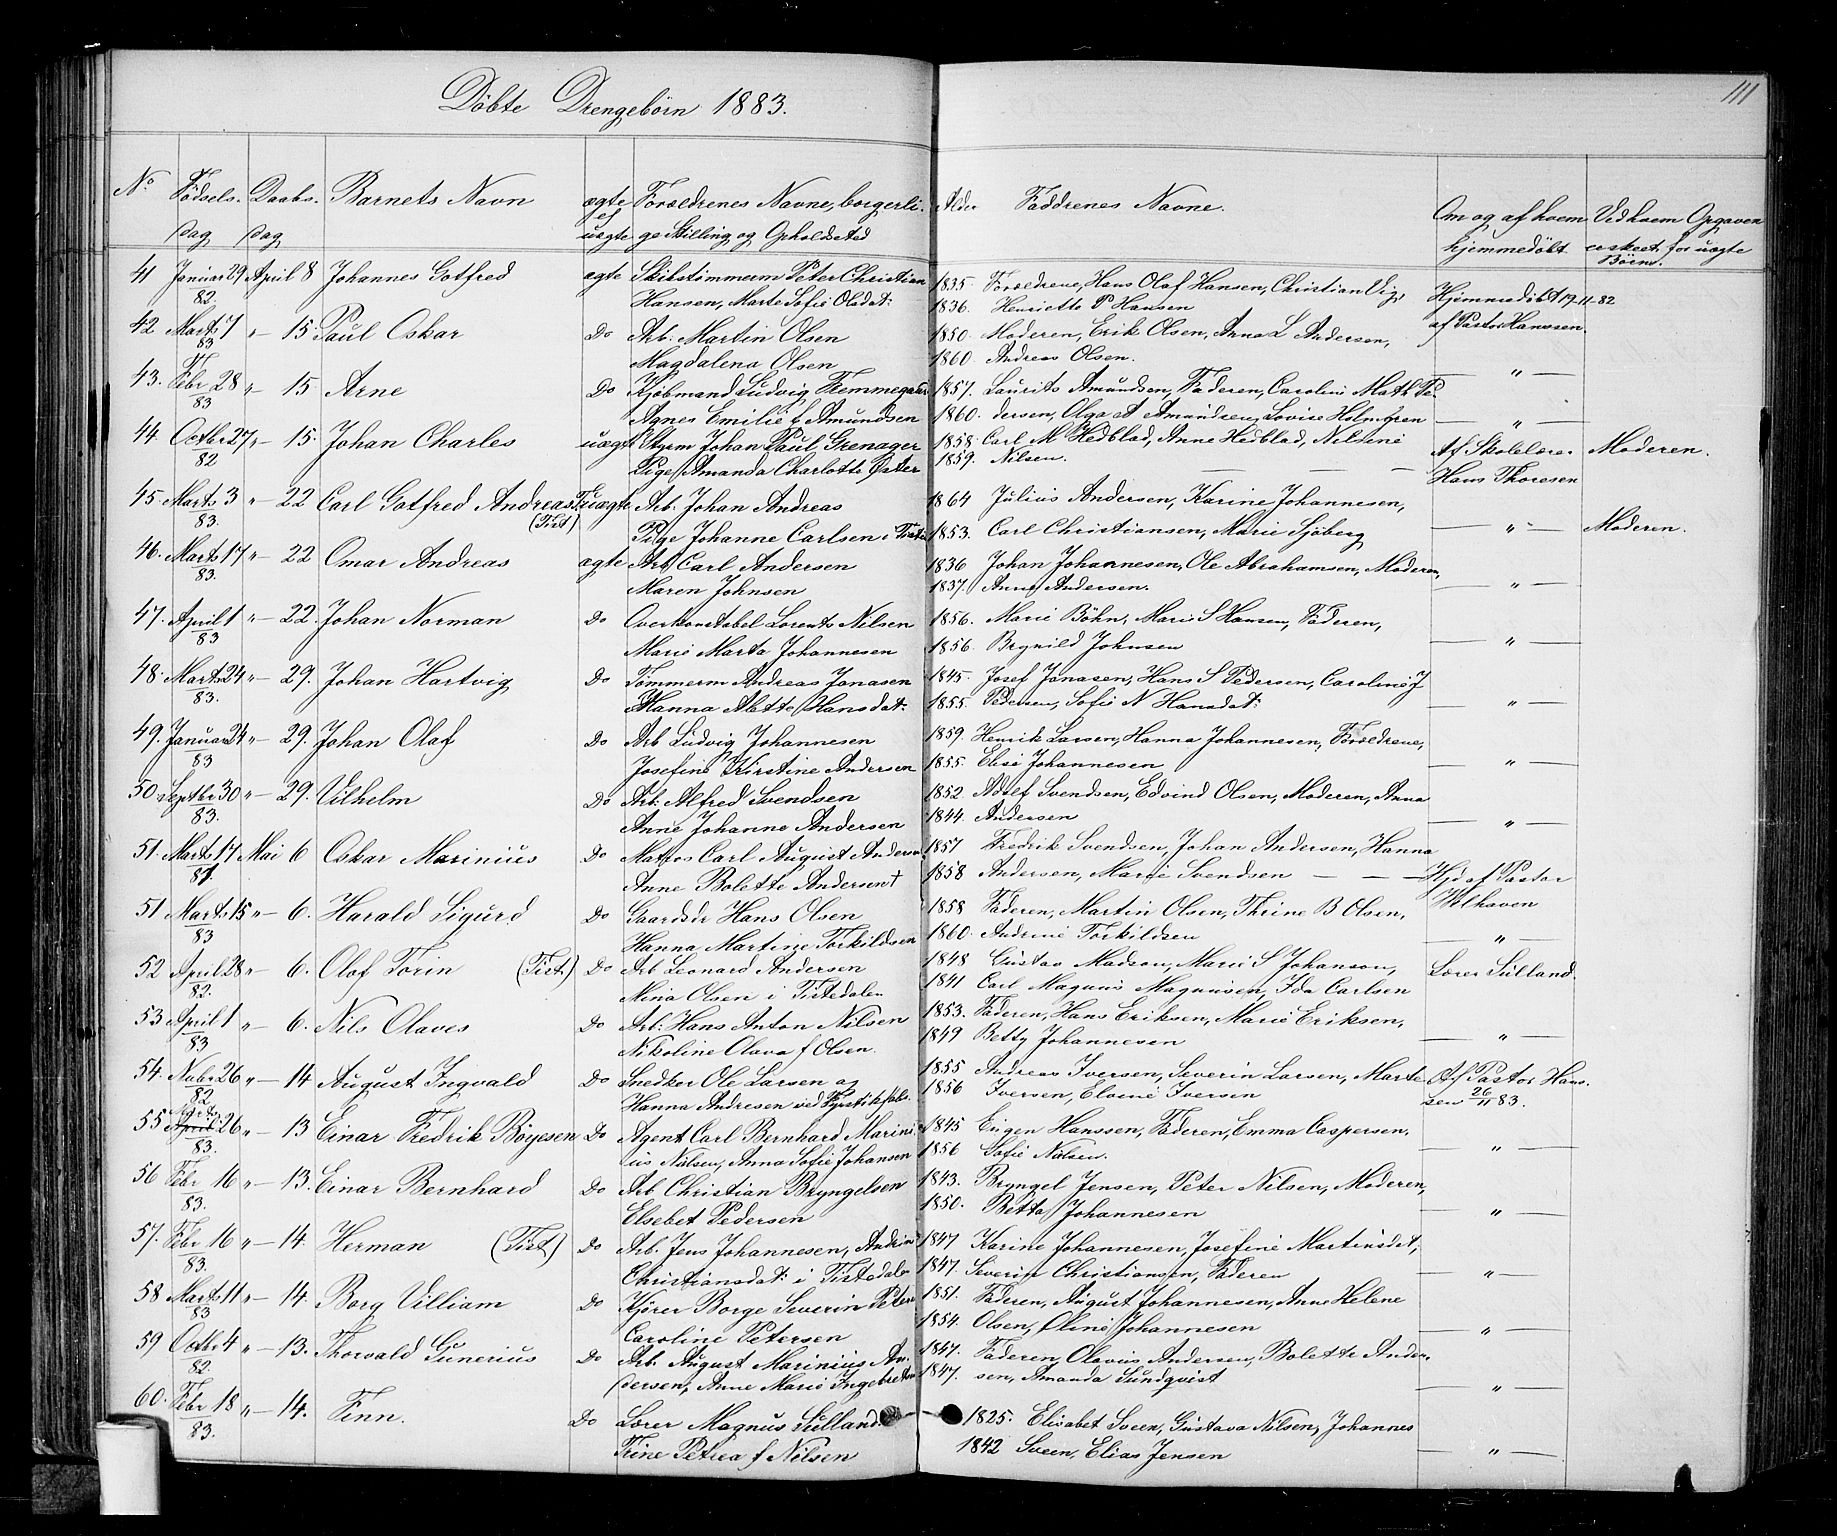 Döbte Drengebörn 1883.
111
No Födsels- dag Daabs- dag Barnets Navn ægte el uægte Forældrenes Navne, borgerli- ge Stilling og Opholdssted Alder Faddrenes Navne. Om og af hvem hjemmedöbt Ved hvem Opgaven er skeet for uægte Börn.
41 Januar 29 April 8 Johannes Gotfred ægte Skibstimmerm Peter Christian 1835. Forældrene, Hans Olaf Hansen, Christian
82. Hansen, Marte Sofie Olsdat: 1836. Henriette P Hansen Hjemmedöbt 19-11-82
42 Marts 7 " - 15. Paul Oskar Do Arb. Martin Olsen 1850. Moderen, Erik Olsen, Anna L Andersen, af Pastor Hanssen.
83 Magdalena Olsen 1860. Andreas Olsen.
43. Febr 28 " - 15. Arne Do Kjöbmand Ludvig Flemmegaar 1857. Laurits Amundsen, Faderen, Caroline Math Pe- — " —
83 Agnes Emilie f Amundsen 1860. dersen, Olga A Amundsen, Lovise Holmgren — " —
44. Octbr 27 " - 15. Johan Charles uægt Styrm Johan Paul Grenager 1858. Carl M Hedblad, Anne Hedblad, Nilsine Af Skolelærer Moderen.
82 Pige Amanda Charlotte Öster 1859. Nilsen. — — — Hans Thoresen
45 Marts 3 " - 22 Carl Gotfred Andreas uægte Arb. Johan Andreas 1864 Julius Andersen, Karine Johannesen,
83. (Tist) Pige Johanne Carlsen i Tiste 1853. Carl Christiansen, Marie Sjöberg — " — Moderen.
46. Marts 17 " - 22 Omar Andreas ægte Arb Carl Andersen 1836 Johan Johannesen, Ole Abrahamsen, Moderen,
83. Maren Johnsen 1837. Anne Andersen. — " —
47. April 1 " - 22. Johan Norman Do Overkonstabel Lorents Nilsen 1856. Marie Böhn, Marie S Hansen, Faderen,
83 Marie Marta Johannesen 1856. Brynild Johnsen — " —
48. Marts 24 " - 29. Johan Hartvig Do Tömmerm Andreas Jonasen 1845. Josef Jonasen, Hans S Pedersen, Caroline J
83. Hanna Alette Hansdat: 1855. Pedersen, Sofie N Hansdat: — " —
49. Januar 24 " - 29. Johan Olaf Do Arb Ludvig Johannesen 1859. Henrik Larsen, Hanna Johannesen, Forældrene,
83 Josefine Kirstine Andersen 1855. Elise Johannesen — " —
50. Septbr 30 " - 29. Vilhelm Do Arb. Alfred Svendsen 1852. Adolf Svendsen, Edvind Olsen, Moderen, Anna
83. Anne Johanne Andersen 1844. Andersen — " —
51. Marts 17 Mai 6 Oskar Marinius Do Matros Carl August Anders 1857 Fredrik Svendsen, Johan Andersen, Hanna
81 Anne Bolette Andersen† 1858 Andersen, Marie Svendsen — — — Hjd af Pastor
51 Marts 15 " - 6. Harald Sigurd Do Gaardsbr Hans Olsen 1858 Faderen, Martin Olsen, Thrine B Olsen, Welhaven
83 Hanna Martine Torkildsen 1860. Andrine Torkildsen — " —
52 April 28 " - 6. Olaf Torin (Tist) Do Arb Leonard Andersen 1848 Gustav Madson, Marie S Johanson, Lærer Sulland.
82. Mina Olsen i Tistedalen 1841 Carl Magnus Magnusen, Ida Carlsen
53 April 1 " - 6. Nils Olaves Do Arb. Hans Anton Nilsen 1853. Faderen, Hans Eriksen, Marie Eriksen,
83 Nikoline Olava f Olsen. 1849 Betty Johannesen — " —
54. Nobr 26 " - 14 August Ingvald Do Snedker Ole Larsen og 1855 Andreas Iversen, Severin Larsen, Marte Af Pastor Hans-
82 Hanna Andresen ved Fyrstikfab. 1856 Iversen, Elvine Iversen sen 26/11 83.
55 Marts April 26 " - 13 Einar Fredrik Böyesen Do Agent Carl Bernhard Marini- 1845 Eugen Hanssen, Faderen, Emma Caspersen,
83. us Nielsen, Anna Sofie Johansen 1856 Sofie Nielsen. — " —
56 Febr 16 " - 13. Einar Bernhard Do Arb Christian Bryngelsen 1843. Bryngel Jensen, Peter Nilsen, Moderen,
83. Elsebet Pedersen 1850. Betta Johannesen — " —
57. Febr 16 " - 14. Herman (Tist) Do Arb. Jens Johannesen, Andrin 1847 Karine Johannesen, Josefine Martinsdt,
83. Christiansdat: i Tistedale 1847. Severin Christiansen, Faderen — " —
58 Marts 11 " - 14. Borg Villiam Do Kjörer Borge Severin Peter 1851. Faderen, August Johannesen, Anne Helene
83 Caroline Petersen 1854. Olsen, Oline Johannesen — " —
59 Octbr 4 " - 13. Thorvald Gunerius Do Arb. August Marinius An- 1847. Faderen, Olavus Andersen, Bolette Ander-
82 dersen, Anne Marie Ingebretsen 1847. sen, Amanda Sundqvist — " —
60. Febr 18 " - 14. Finn. Do Lærer Magnus Sulland. 1825. Elisabet Sveen, Gustava Nilsen, Johannes
83. Trine Petrea f Nilsen 1842 Sveen, Elias Jensen — " —